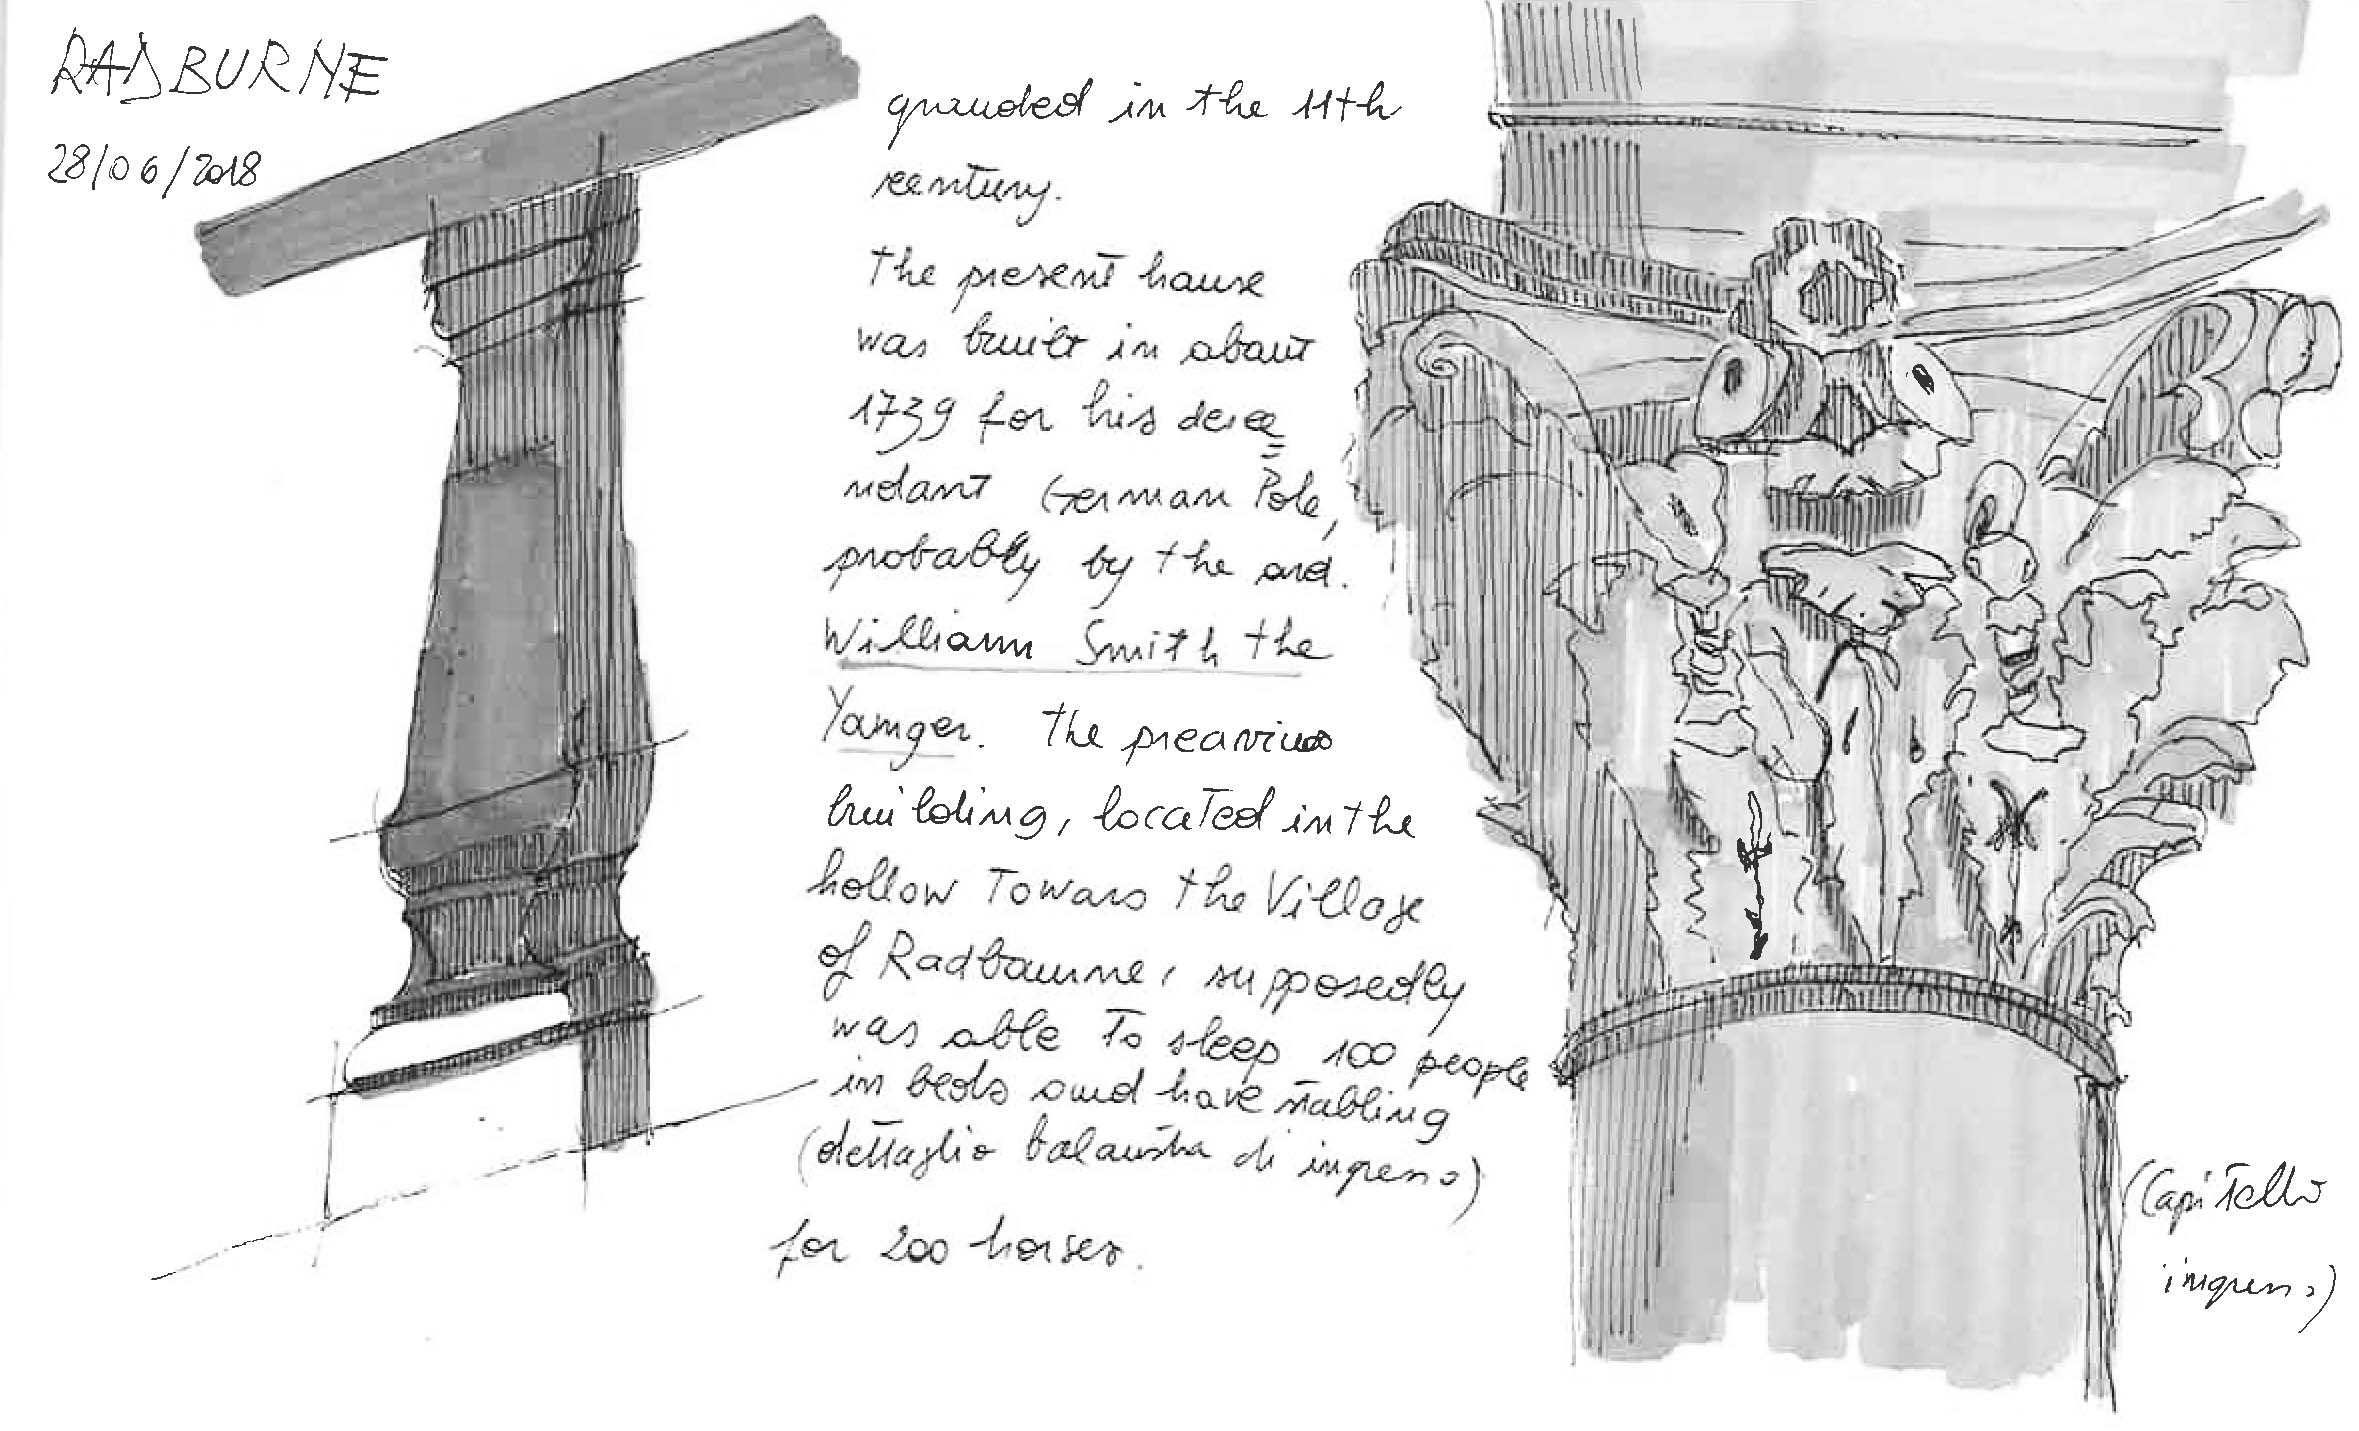 RADBURNE
28/06/2018
grauded in the 11th
century.
the present house
was built in about
1739 for his desce
ndant German Pole,
probably by the ard.
William Smith the
Younger. the preavious
building, located in the
hollow Towars the Village
of Radbourne, supposedly
was able To sleep 100 people
in beds and have stabling
(dettaglio balaustra di ingresso)
for 200 horses.
(Capitello
ingresso)